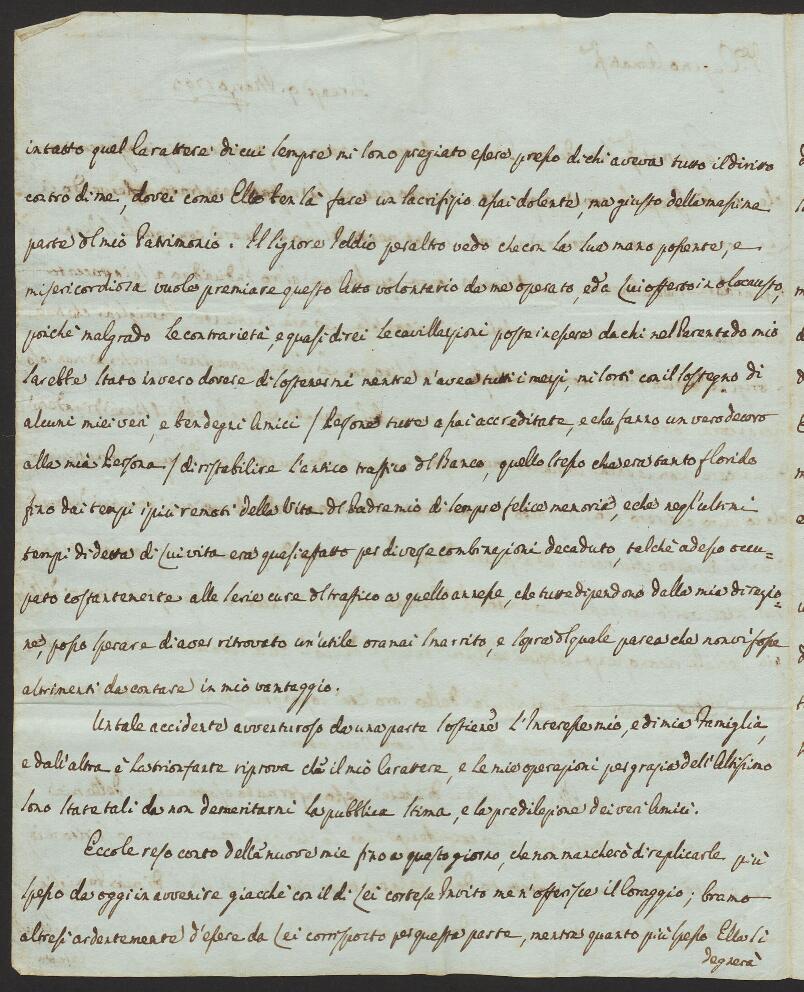 intatto quel Carattere di cui sempre mi sono pregiato essere presso di chi aveva tutto il diritto
contro di me, dovei come Ella ben sà fare un sacrifizio assai dolente, ma giusto della massima
parte del mio Patrimonio. Il Signore Iddio peraltro vedo che con la sua mano possente, e
misericordiosa vuole premiare questo Atto volontario da me operato, ed a Lui offerto in olocausto,
poichè malgrado le contrarietà, e quasi direi le cavillazioni poste in essere da chi nel Parentado mio
sarebbe stato in vero dovere di sostenermi mentre n'avea tutti i mezzi, mi sortì con il sostegno di
alcuni miei veri, e ben degni Amici / Persone tutte assai accreditate, e che fanno un vero decoro
alla mia Persona / di ristabilire l'antico traffico del Banco, quello stesso che era tanto florido
fino dai tempi i più remoti della Vita del Padre mio di sempre felice memoria, e che negl'ultimi
tempi di detta di Lui vita era quasi affatto per diverse combinazioni decaduto, talchè adesso occu=
pato costantemente alle serie cure del traffico a quello annesse, che tutte dipendono dalla mia direzio=
ne, posso sperare d'aver ritrovato un'utile oramai smarrito, e sopra del quale parea che non vi fosse
altrimenti da contare in mio vantaggio.
Un tale accidente avventuroso da una parte sostiene l'Interesse mio, e di mia Famiglia,
e dall'altra è la trionfante riprova che il mio Carattere, e le mie operazioni per grazia dell'Altissimo
sono state tali da non demeritarmi la pubblica stima, e la predilezione dei veri Amici.
Eccole reso conto delle nuove mie fino a questo giorno, che non mancherò di replicarle più
spesso da oggi in avvenire giacchè con il di Lei cortese Invito me n'offerisce il Coraggio; bramo
altresì ardentemente d'essere da Lei corrisposto per questa parte, mentre quanto più spesso Ella si
degnerà